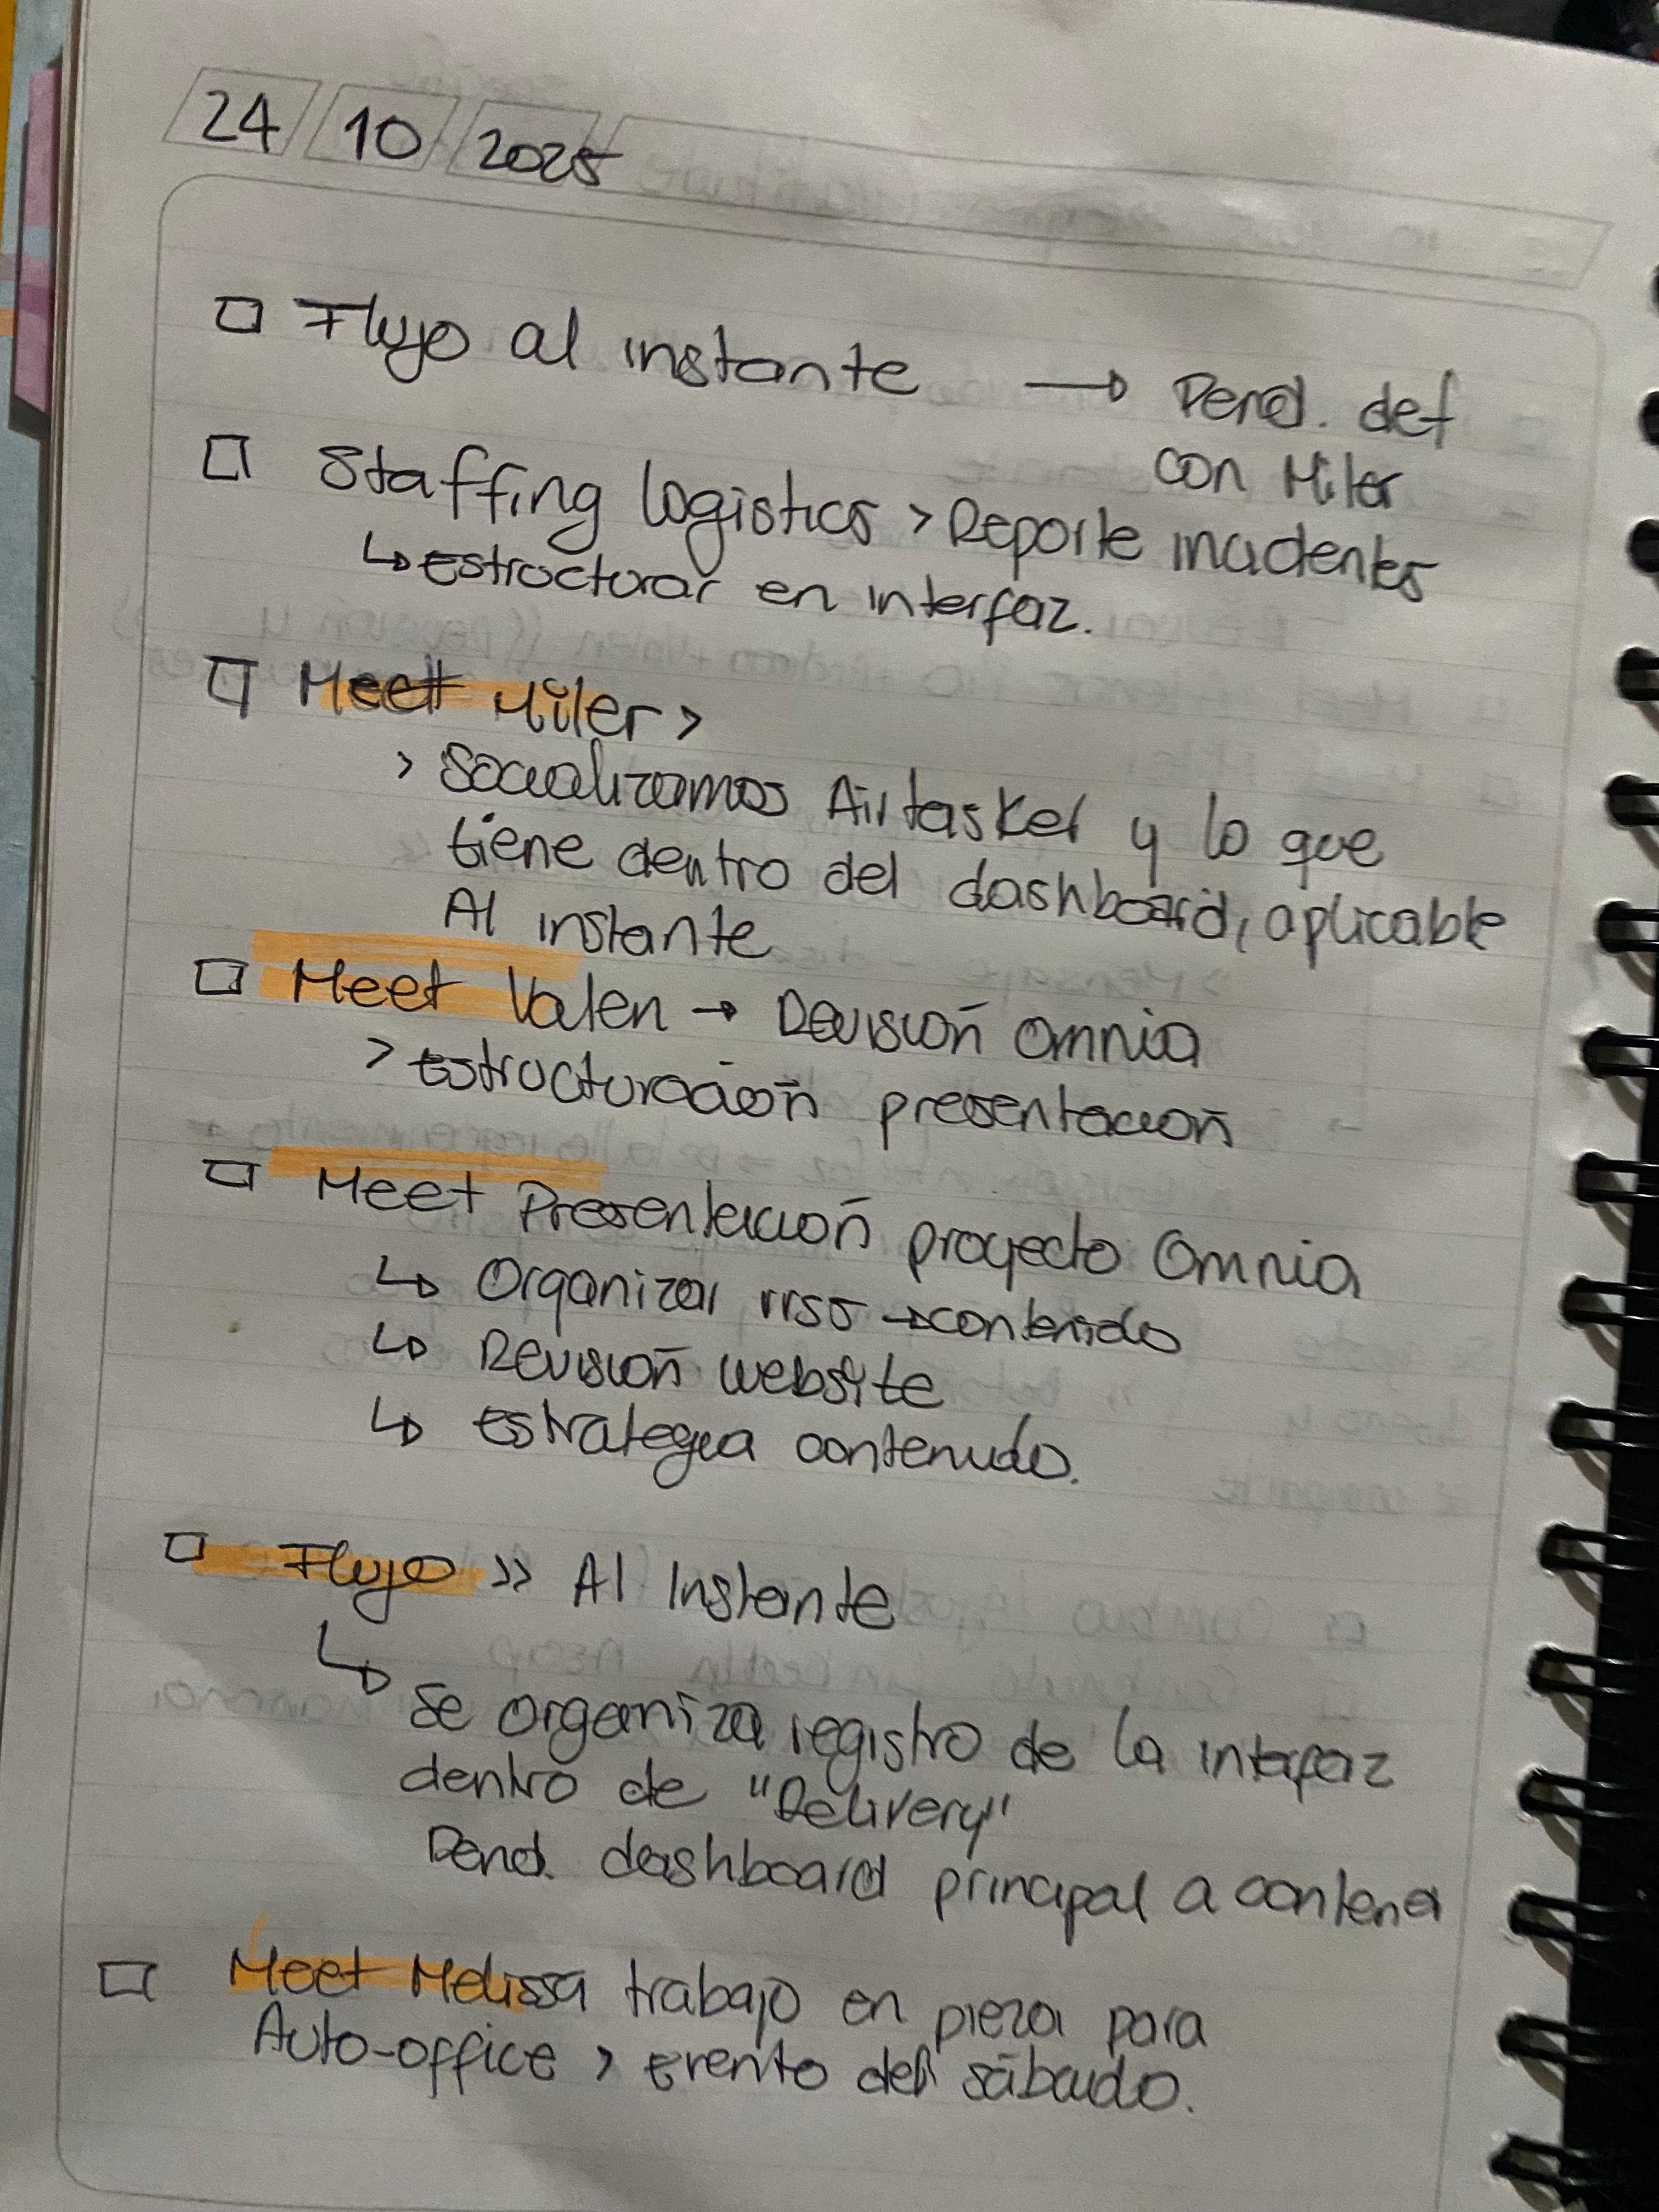 24 10 2025
□ Flujo al instante → Pend. def
con Miler
□ Staffing logistics > Reporte incidentes
↳ estructurar en interfaz.
□ Meet Miler >
> Socializamos Airtasker y lo que
tiene dentro del dashboard, aplicable
Al instante
□ Meet Valen → Revisión Omnia
> estructuración presentación
□ Meet Presentación proyecto Omnia
↳ Organizar rrss → contenido
↳ Revisión website
↳ estrategia contenido.
□ Flujo >> Al Instante
↳ Se organiza registro de la interfaz
dentro de "Delivery"
Pend. dashboard principal a contener
□ Meet Melissa trabajo en pieza para
Auto-office > evento del sábado.